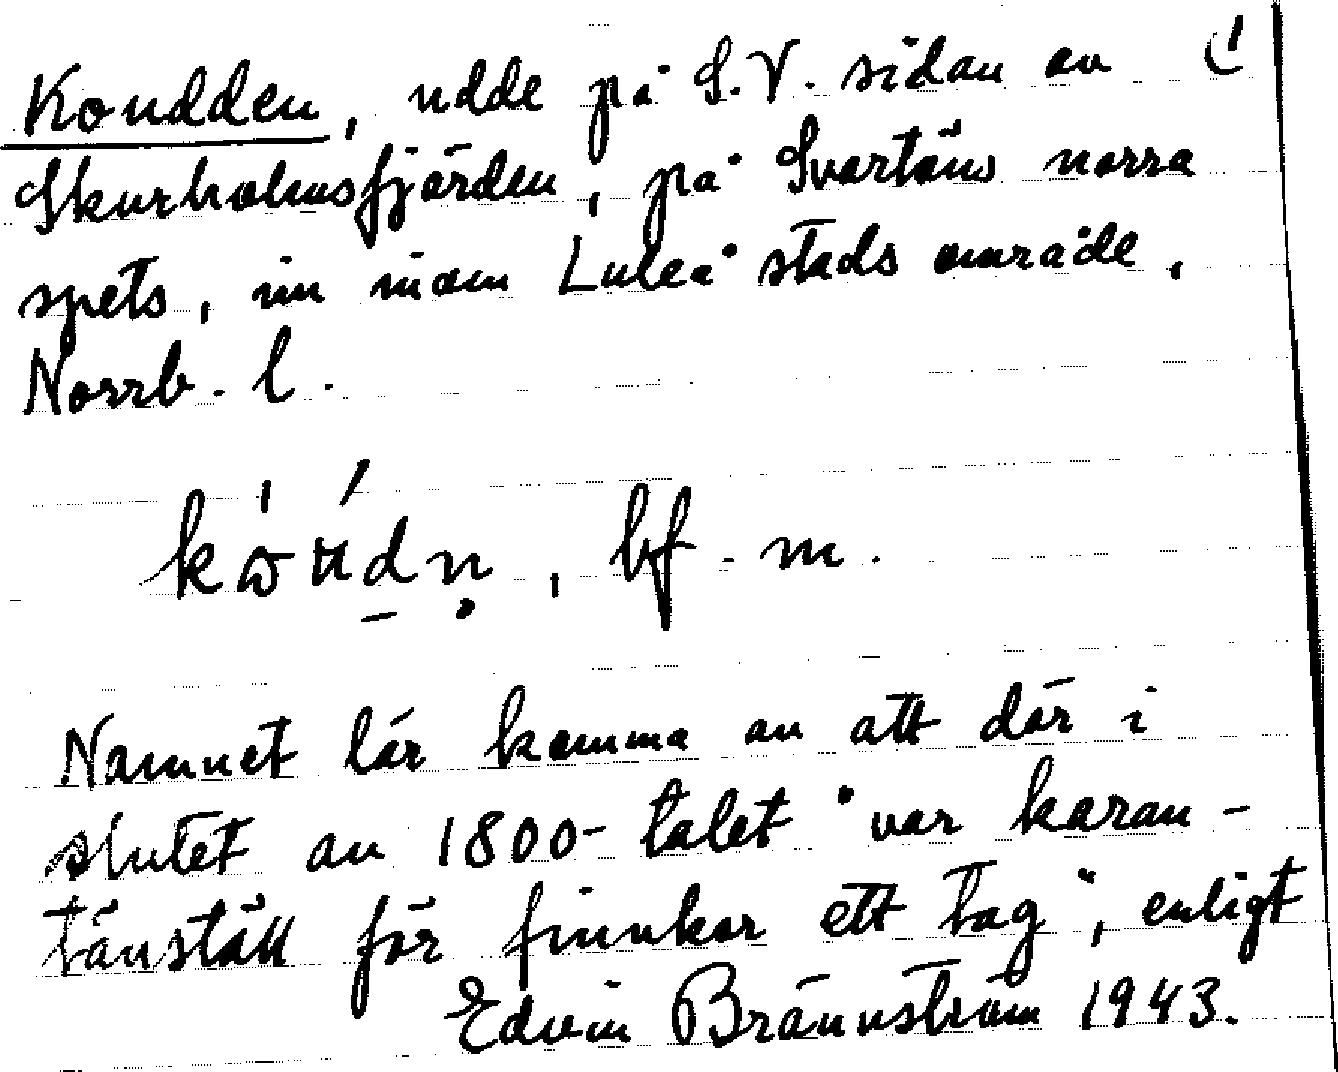 Koudden, udde på S.V. sidan av
Skurholmsfjärden, på Svartöns norra
spets, nu inom Luleå stads område,
Norrb. l.
bf. m.
Namnet lär komma av att där i
slutet av 1800-talet "var karan-
tänställ för finnkor ett tag", enligt
Edvin Brännström 1943.